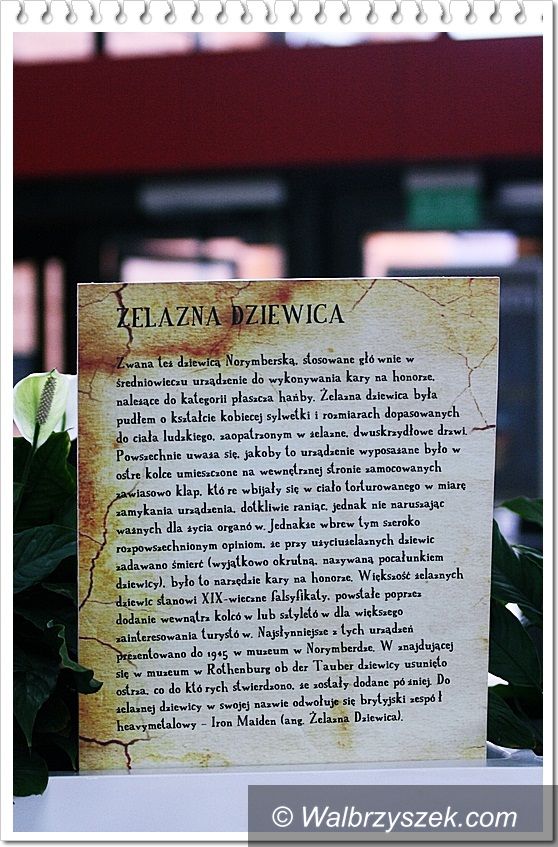 ŻELAZNA DZIEWICA
Zwana też dziewicą Norymberską, stosowane głó wnie w
średniowieczu urządzenie do wykonywania kary na honorze,
należące do kategorii płaszcza hańby. Żelazna dziewica była
pudłem o kształcie kobiecej sylwetki i rozmiarach dopasowanych
do ciała ludzkiego, zaopatrzonym w żelazne, dwuskrzydłowe drzwi.
Powszechnie uważa się, jakoby to urządzenie wyposażane było w
ostre kolce umieszczone na wewnętrznej stronie zamocowanych
zawiasowo klap, któ re wbijały się w ciało torturowanego w miarę
zamykania urządzenia, dotkliwie raniąc, jednak nie naruszając
ważnych dla życia organó w. Jednakże wbrew tym szeroko
rozpowszechnionym opiniom, że przy użyciużelaznych dziewic
zadawano śmierć (wyjątkowo okrutną, nazywaną pocałunkiem
dziewicy), było to narzędzie kary na honorze. Większość żelaznych
dziewic stanowi XIX-wieczne falsyfikaty, powstałe poprzez
dodanie wewnątrz kolcó w lub sztyletó w dla większego
zainteresowania turystó w. Najsłynniejsze z tych urządzeń
prezentowano do 1945 w muzeum w Norymberdze. W znajdującej
się w muzeum w Rothenburg ob der Tauber dziewicy usunięto
ostrza, co do któ rych stwierdzono, że zostały dodane pó źniej. Do
żelaznej dziewicy w swojej nazwie odwołuje się brytyjski zespó ł
heavymetalowy - Iron Maiden (ang. Żelazna Dziewica).
© Walbrzyszek.com